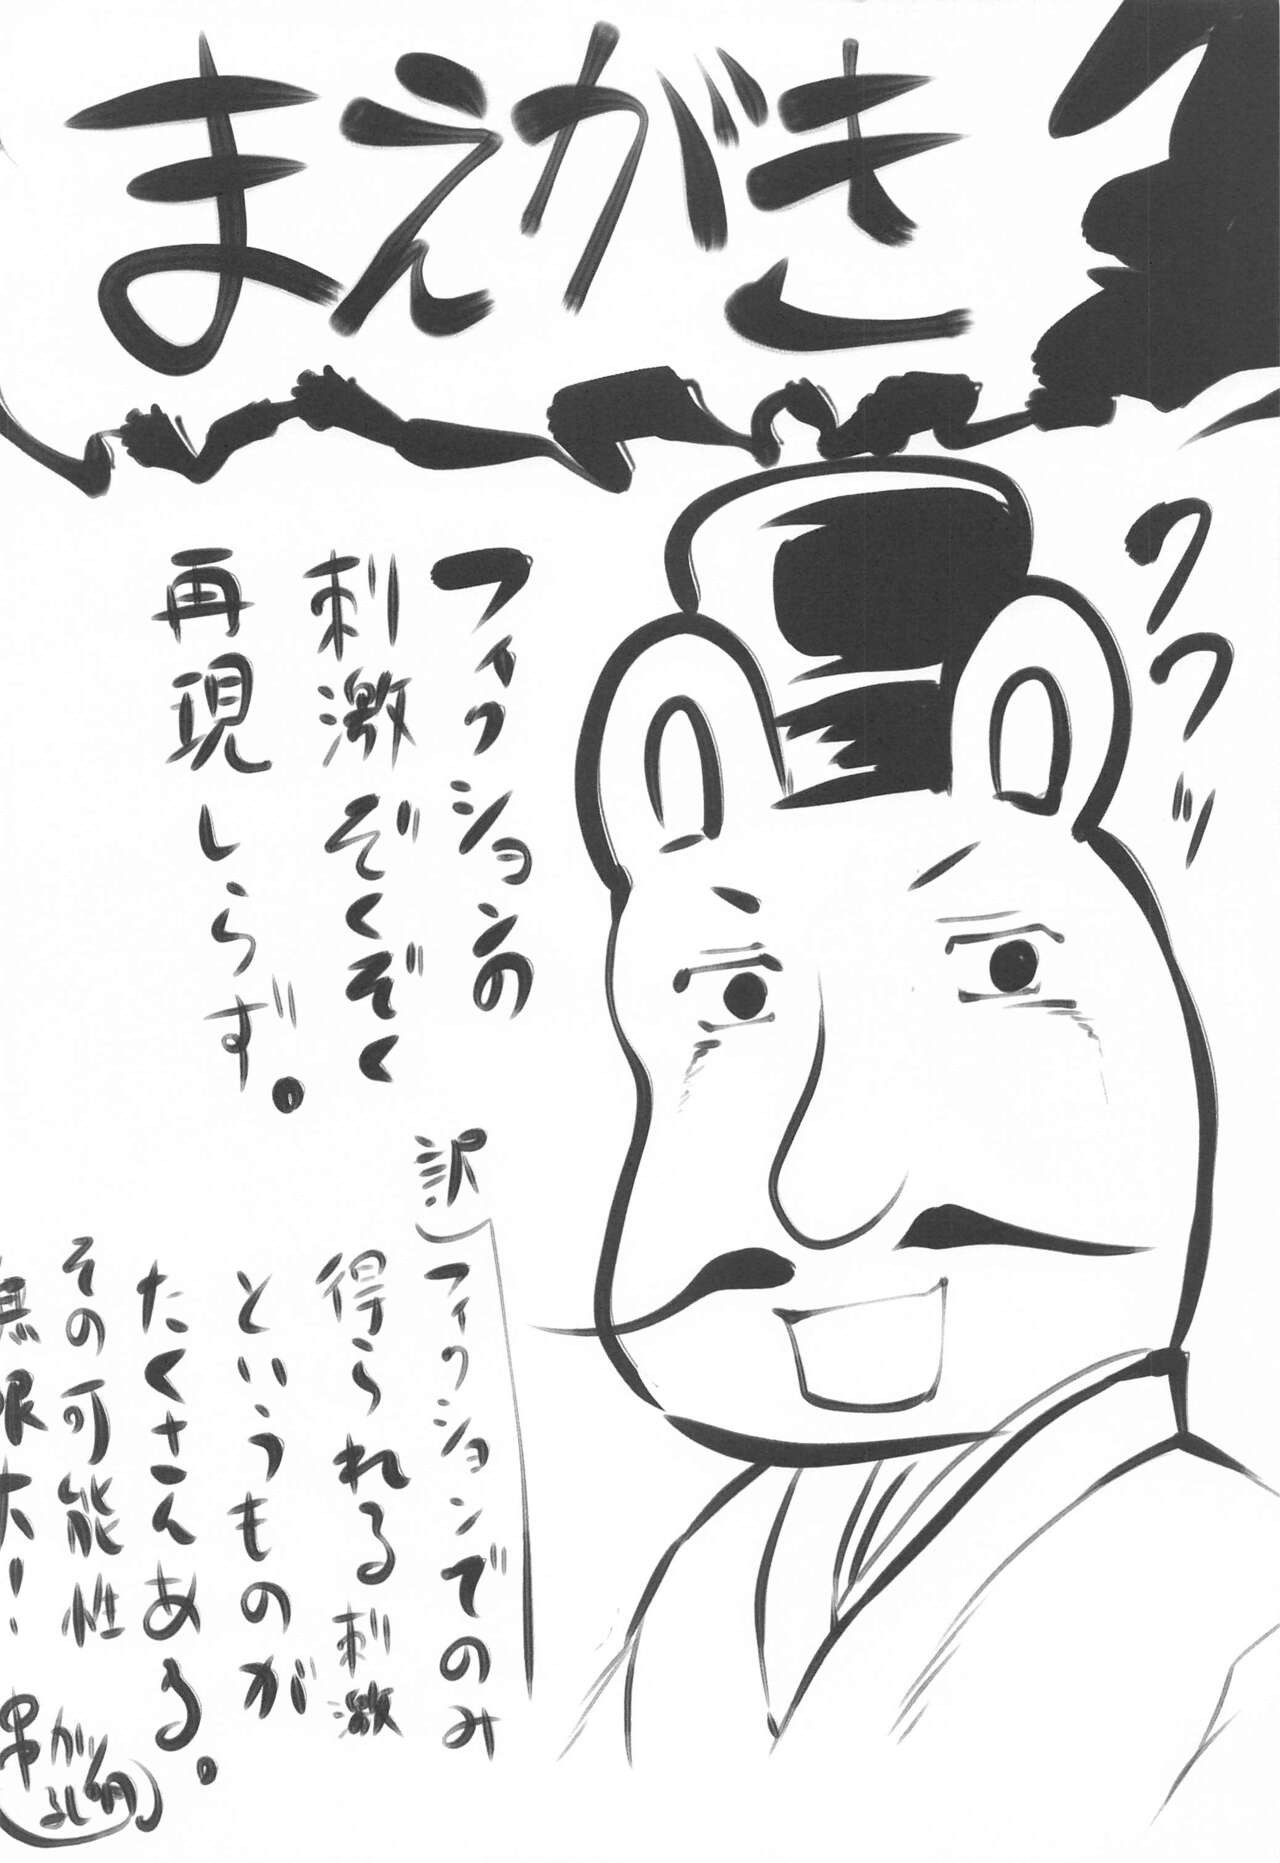 まえがき
ワクワクッ
フィクションの
刺激ぞくぞく
再現しらず。
訳)フィクションでのみ
得られる刺激
というものが
たくさんある。
その可能性
無限大!